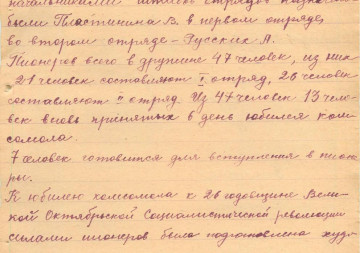 начальниками штабов отрядов назначе-
были Пластинина В. в первом отряде,
во втором отряде – Русских А.
Пионеров всего в дружине 47 человек, из них
21 человек составляют I отряд, 26 человек
составляют II отряд. Из 47 человек 13 чело-
век вновь принятых в день юбилея ком-
сомола.
7 человек готовится для вступления в пионе-
ры.
К юбилею комсомола к 26 годовщине Вели-
кой Октябрьской Социалистической революции
силами пионеров была подготовлена худо-